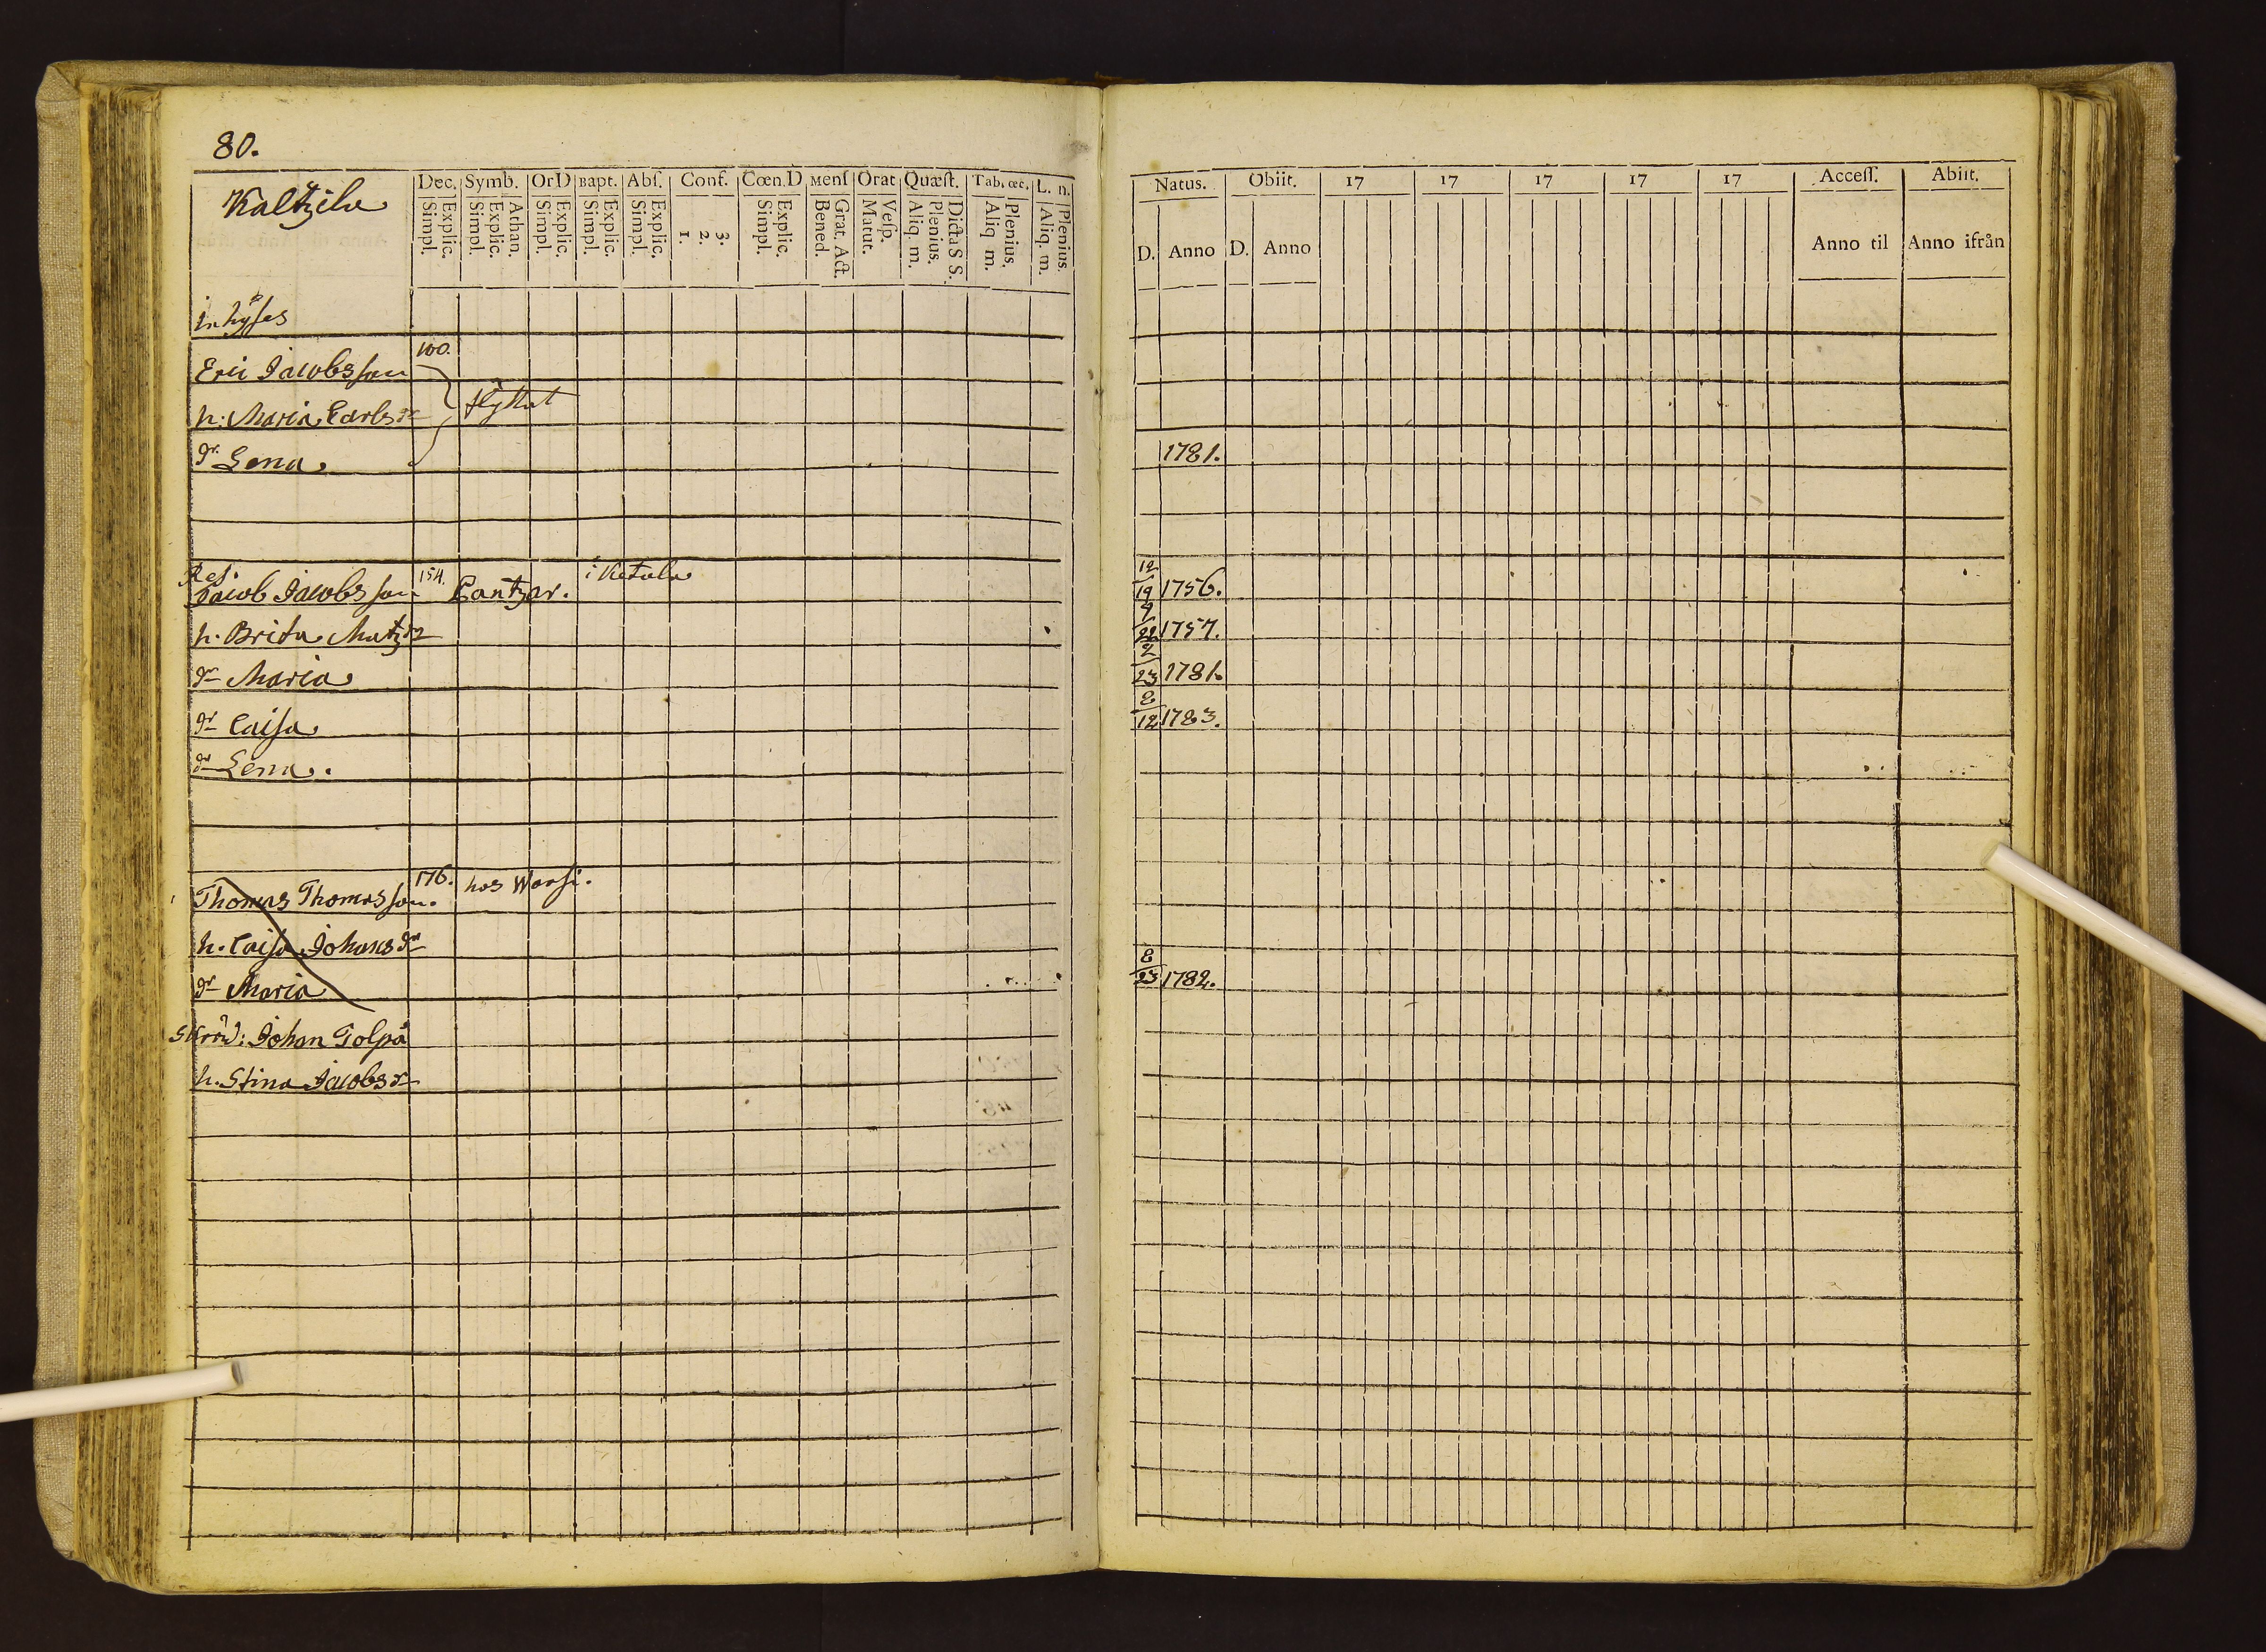 80.
Kaltzila
Dec. Symb. OrD Bapt. Abſ. Conf. Cœn.D Menſ Orat Quæſt. Tab. œc. L. n.
Simpl. Explic. Simpl. Explic. Athan. Simpl. Explic. Simpl. Explic. Simpl. Explic. 1. 2. 3. Simpl. Explic. Bened. Grat. Act. Matut. Veſp. Aliq. m. Plenius. Dicta S S. Aliq m. Plenius. Aliq. m. Plenius.
Inhyses
Eric Jacobsson 100.
h: Maria Carlsdr flyttat
dr Lena
Ref. i Ketala
Jacob Jacobsson 154. Pantzar.
h. Brita Matzdr
dr Maria
dr Caisa
dr Lena.
Thomas Thomasson. 176. hos Warsi.
h. Caisa Johansdr
dr Maria
Skräd: Johan Tolpa
h. Stina Jacobsdr
Natus. Obiit. 17 17 17 17 17 Acceſſ. Abiit.
D. Anno D. Anno Anno til Anno ifrån
1781.
12/19 1756.
9/22 1757.
2/23 1781.
8/12 1783.
8/23 1782.